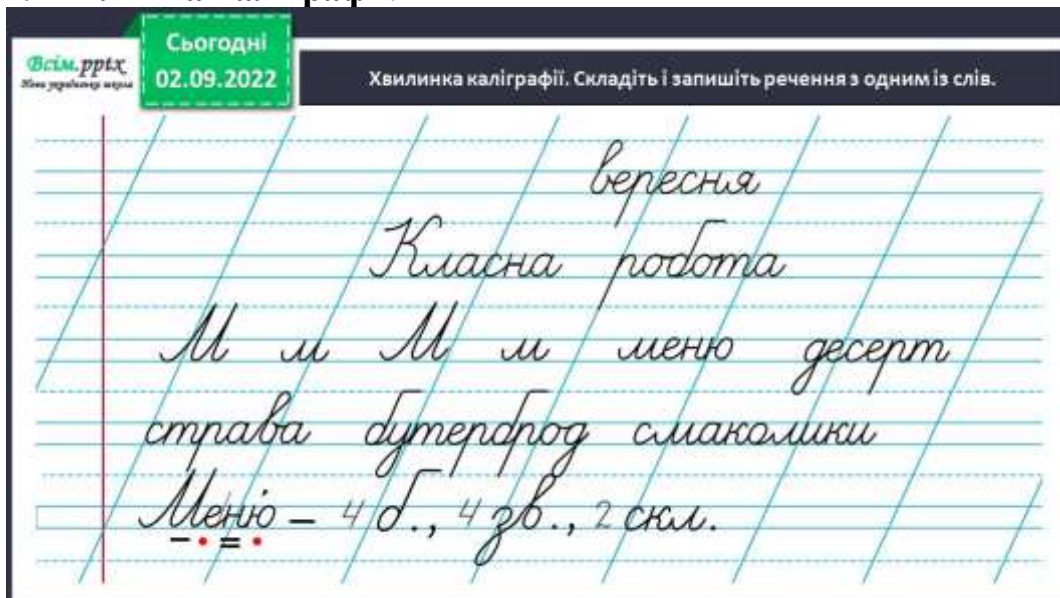 Сьогодні
02.09.2022
Всім.pptx
Нова українська школа
Хвилинка каліграфії. Складіть і запишіть речення з одним із слів.
вересня
Класна робота
М м М м меню десерт
страва бутерброд смаколики
Меню́ – 4 б., 4 зв., 2 скл.